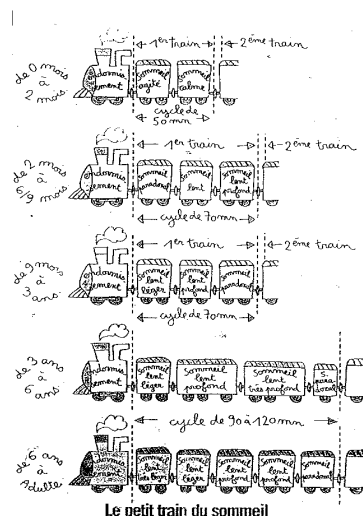 ← 1er train → ← 2ème train
de 0 mois à 2 mois
Endormissement
Sommeil agité
Sommeil calme
cycle de 50 mn
← 1er train → ← 2ème train
de 2 mois à 6/9 mois
Endormissement
Sommeil paradoxal
Sommeil lent
Sommeil lent profond
← cycle de 70mn →
← 1er train → ← 2ème train
de 9 mois à 3 ans
Endormissement
Sommeil lent léger
Sommeil lent profond
Sommeil paradoxal
← cycle de 70mn →
de 3 ans à 6 ans
Endormissement
Sommeil lent léger
Sommeil lent profond
Sommeil lent très profond
S. paradoxal
← cycle de 90 à 120mn →
de 6 ans à Adulte
Endormissement
Sommeil lent très léger
Sommeil lent léger
Sommeil lent profond
Sommeil lent profond
Sommeil paradoxal
Le petit train du sommeil